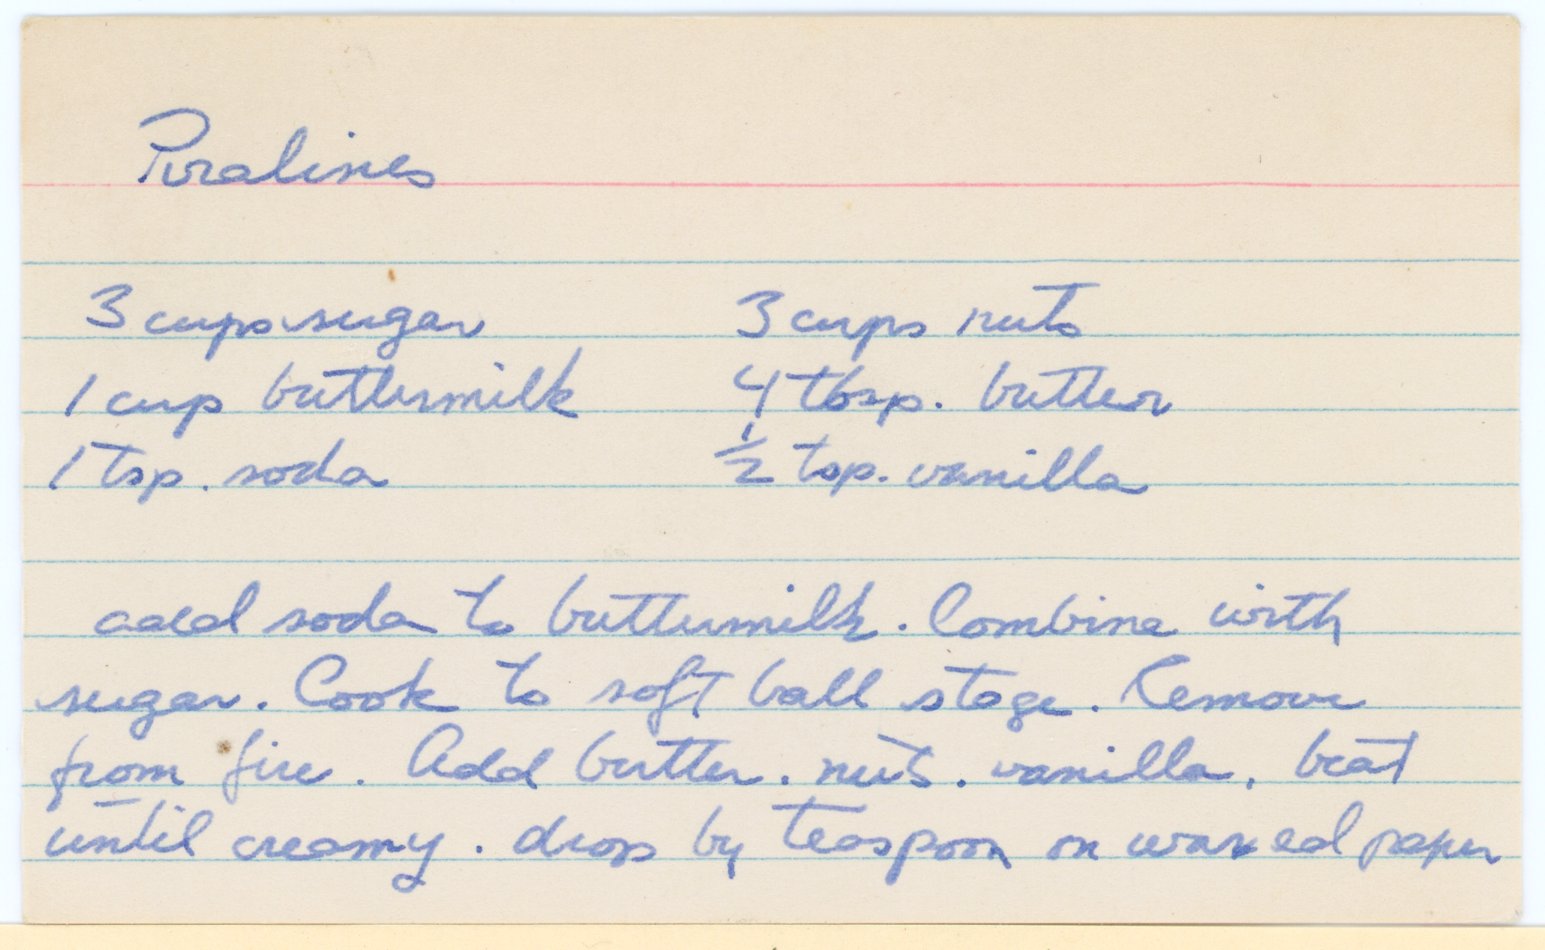 Pralines
3 cups sugar 3 cups nuts
1 cup buttermilk 4 tbsp. butter
1 tsp. soda ½ tsp. vanilla
add soda to buttermilk. Combine with
sugar. Cook to soft ball stage. Remove
from fire. Add butter. nuts. vanilla, beat
until creamy. drop by teaspoon on waxed paper